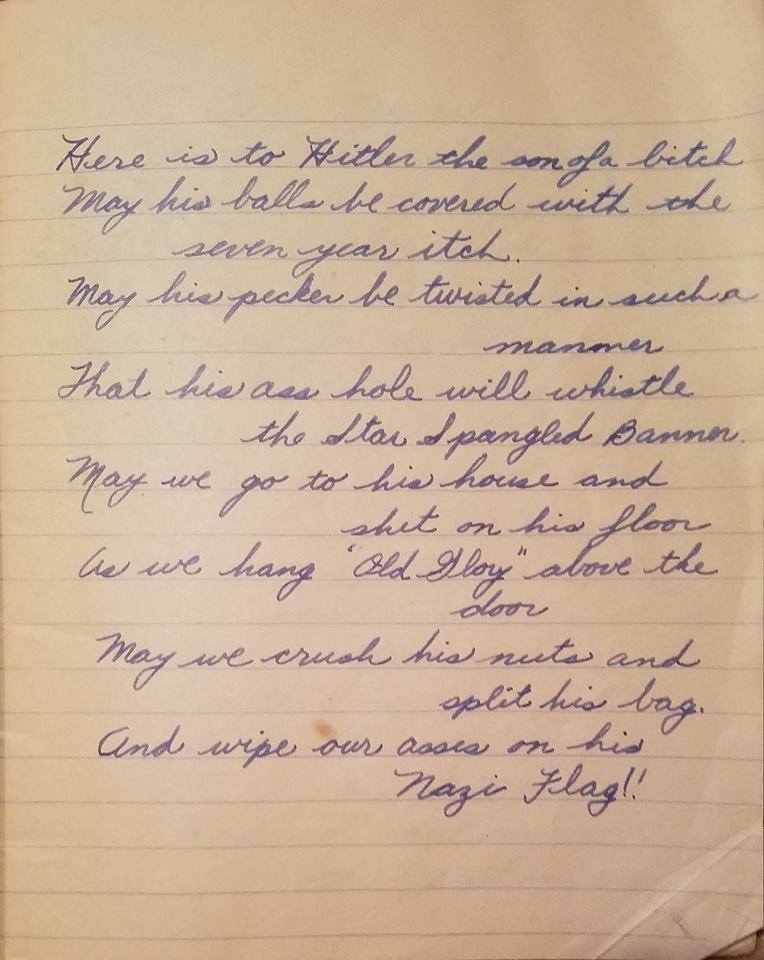 Here is to Hitler the son of a bitch
May his balls be covered with the
seven year itch.
May his pecker be twisted in such a
manner
That his ass hole will whistle
the Star Spangled Banner.
May we go to his house and
shit on his floor
As we hang "Old Glory" above the
door
May we crush his nuts and
split his bag.
And wipe our asses on his
Nazi Flag!!